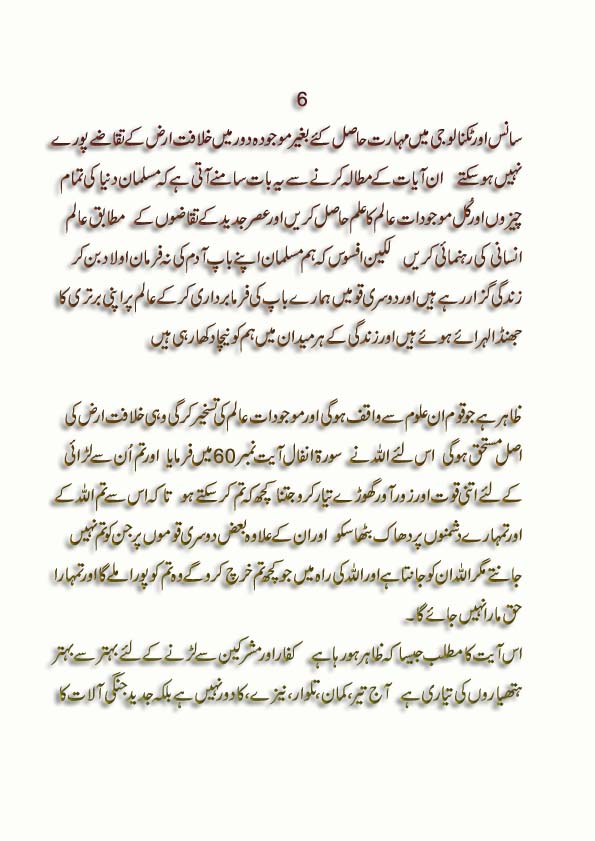 6
سانس اور ٹکنالوجی میں مہارت حاصل کئے بغیر موجودہ دور میں خلافت ارض کے تقاضے پورے
نہیں ہو سکتے ان آیات کے مطالہ کرنے سے یہ بات سامنے آتی ہے کہ مسلمان دنیا کی تمام
چیزوں اور کُل موجودات عالم کا علم حاصل کریں اور عصر جدید کے تقاضوں کے مطابق عالم
انسانی کی رہنمائی کریں لکین افسوس کہ ہم مسلمان اپنے باپ آدم کی نہ فرمان اولاد بن کر
زندگی گزار رہے ہیں اور دوسری قومیں ہمارے باپ کی فرما برداری کر کے عالم پر اپنی برتری کا
جھنڈا لہرائے ہوئے ہیں اور زندگی کے ہر میدان میں ہم کو نیچا دکھا رہی ہیں
ظاہر ہے جو قوم ان علوم سے واقف ہو گی اور موجودات عالم کی تسخیر کر گی وہی خلافت ارض کی
اصل مستحق ہو گی اس لئے اللہ نے سورۃ انفال آیت نمبر 60 میں فرمایا اور تم اُن سے لڑائی
کے لئے اتنی قوت اور زور آور گھوڑے تیار کرو جتنا کچھ کہ تم کر سکتے ہو تا کہ اس سے تم اللہ کے
اور تمہارے دشمنوں پر دھاک بٹھا سکو اور ان کے علاوہ بعض دوسری قوموں پر جن کو تم نہیں
جانتے مگر اللہ ان کو جانتا ہے اور اللہ کی راہ میں جو کچھ تم خرچ کرو گے وہ تم کو پورا ملے گا اور تمہارا
حق مارا نہیں جائے گا۔
اس آیت کا مطلب جیسا کہ ظاہر ہو رہا ہے کفار اور مشرکین سے لڑنے کے لئے بہتر سے بہتر
ہتھیاروں کی تیاری ہے آج تیر، کمان، تلوار، نیزے، کا دور نہیں ہے بلکہ جدید جنگی آلات کا